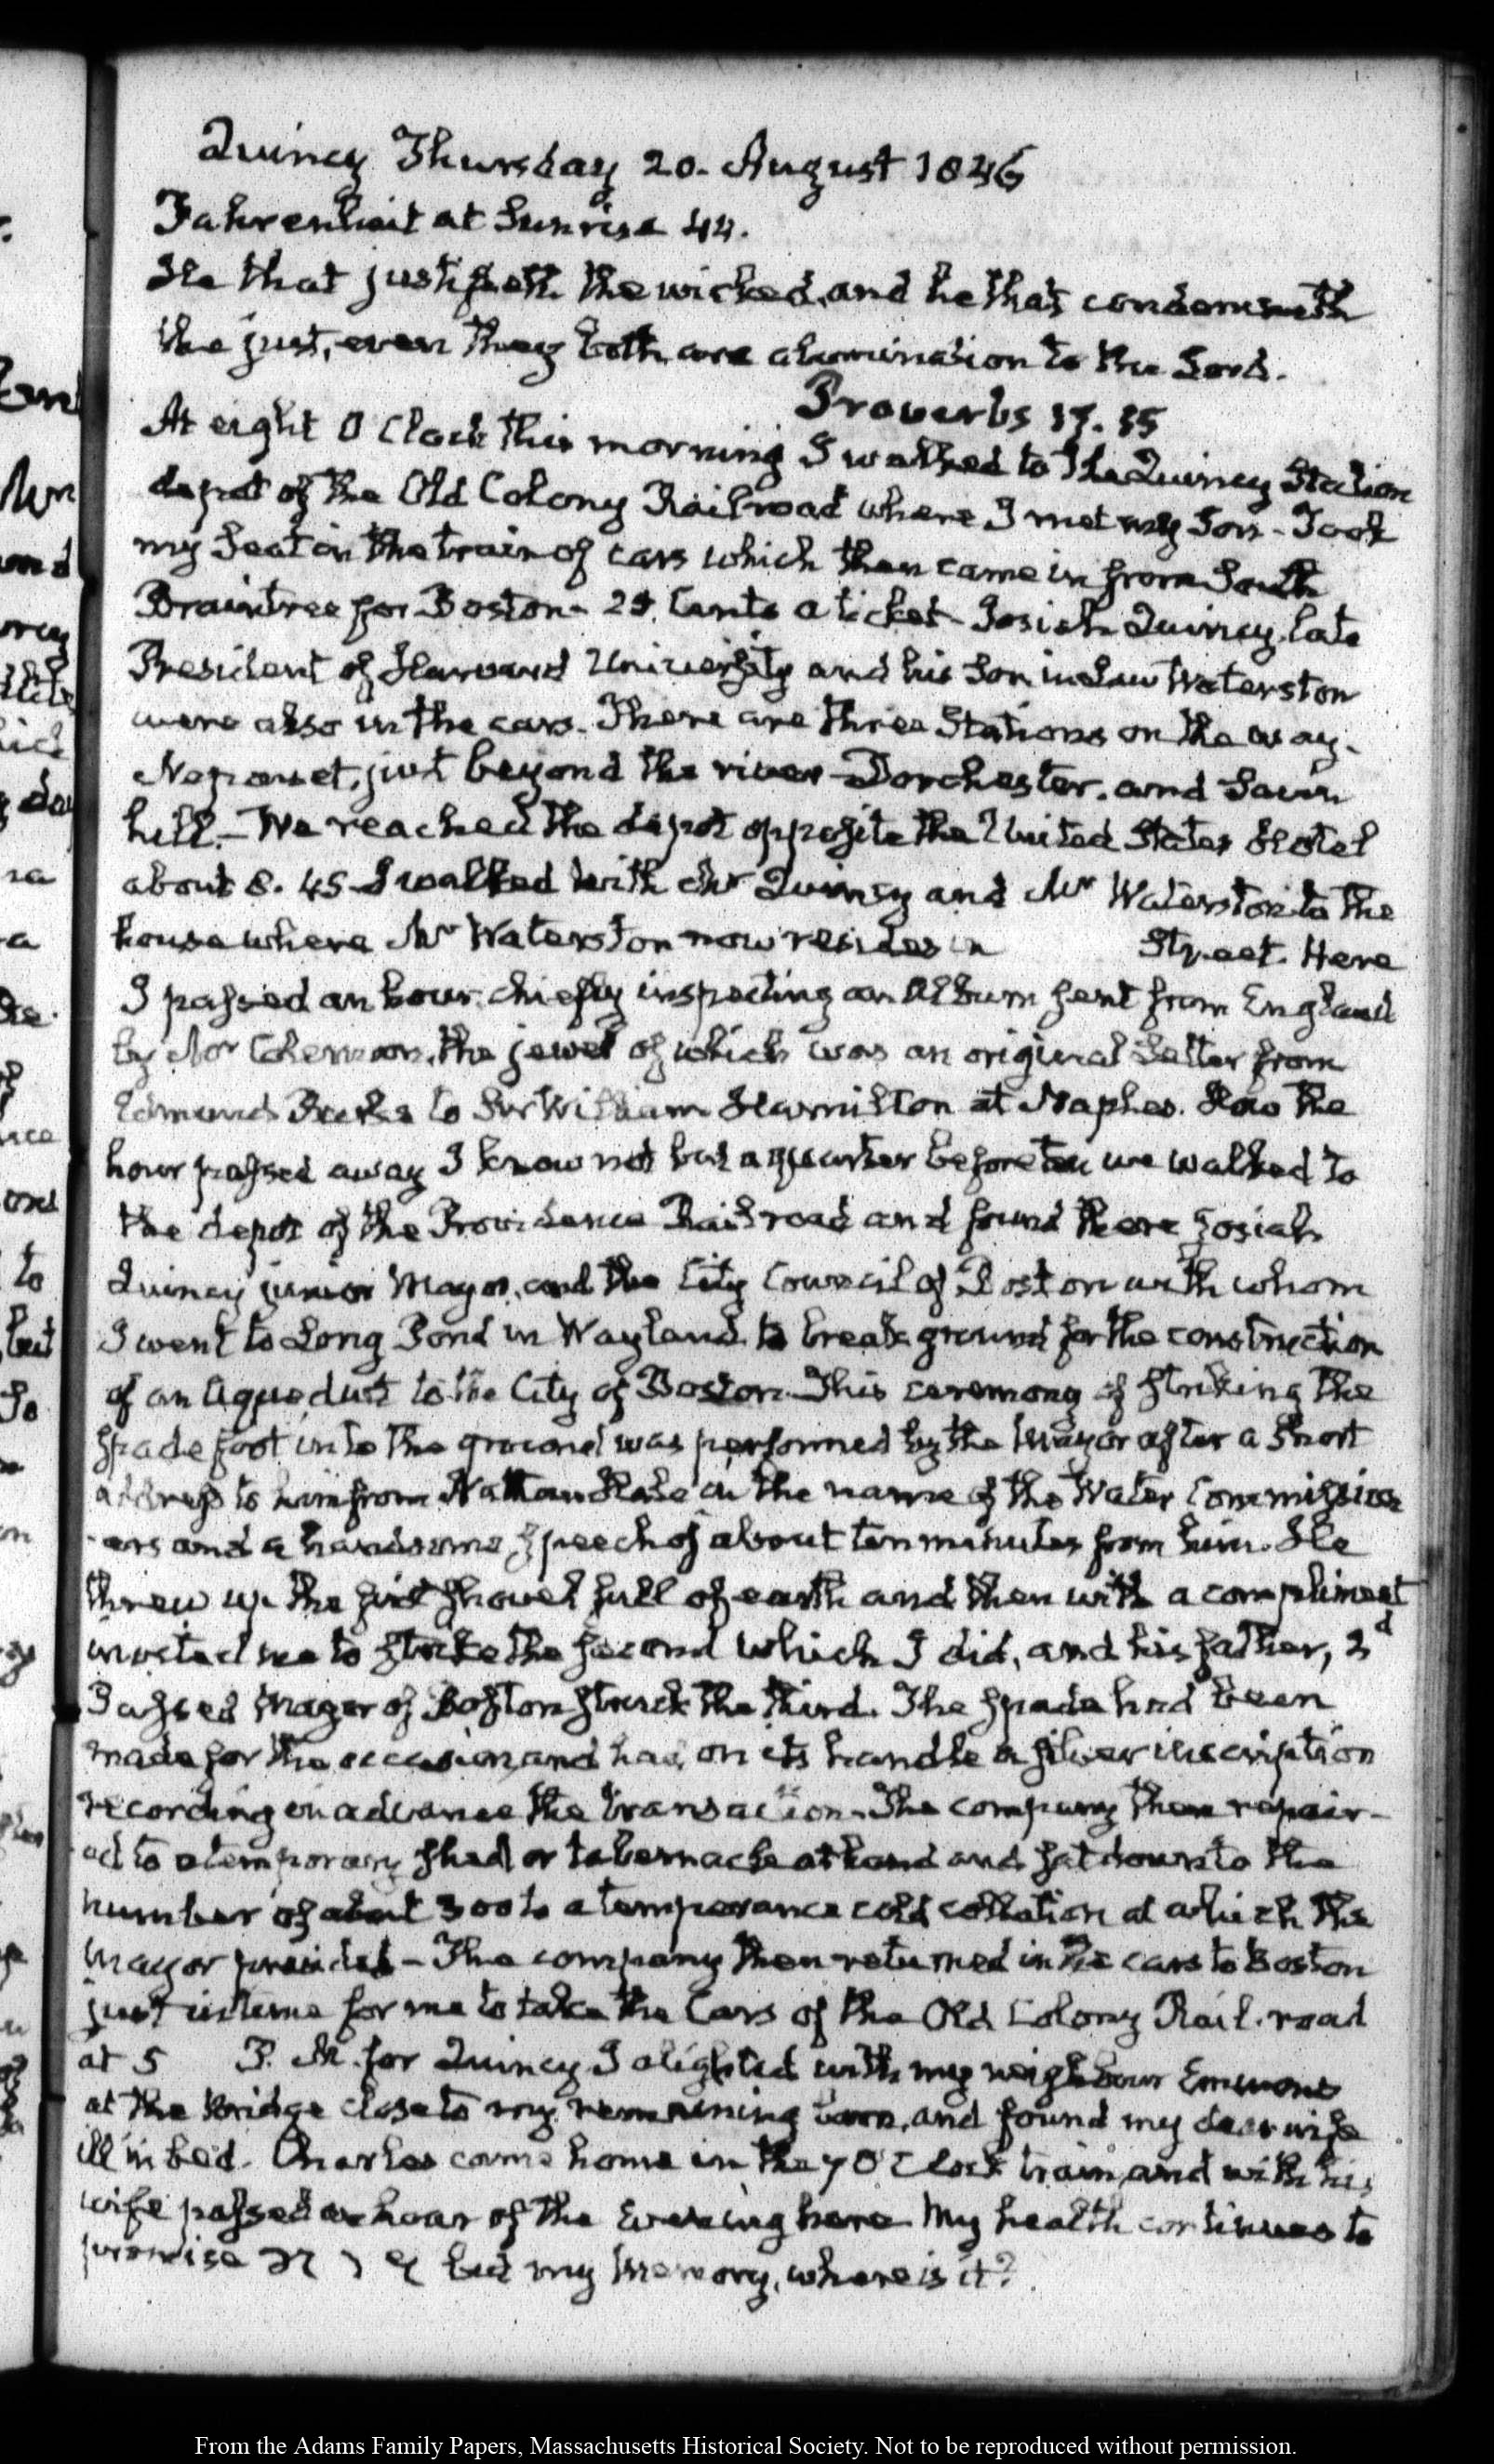 Quincy Thursday 20. August 1846
Fahrenheit at Sunrise 44.
He that justifieth the wicked, and he that condemneth
the just, even they both are abomination to the Lord.
Proverbs 17. 15
At eight O Clock this morning I walked to The Quincy Station
depot of the Old Colony Railroad where I met my Son - Took
my Seat in the train of cars which then came in from South
Braintree for Boston - 25 Cents a ticket - Josiah Quincy, late
President of Harvard University and his Son in Law Waterston
were also in the cars. There are three Stations on the way.
Neponset, just beyond the river - Dorchester, and Savin
hill. - We reached the depot opposite the United States Hotel
about 8. 45 - I walked with Mr Quincy and Mr Waterston to the
house where Mr Waterston now resides in Street. Here
I passed an hour, chiefly inspecting an Album sent from England
by Mr the jewel of which was an original Letter from
Edmund Burke to Sir William Hamilton at Naples. How the
hour passed away I know not but a quarter before ten we walked to
the depot of the Providence Railroad and found there Josiah
Quincy junior Mayor, and the City Council of Boston with whom
I went to Long Pond in Wayland to break ground for the construction
of an Aqueduct to the City of Boston. This ceremony of striking the
spade foot into the ground was performed by the Mayor after a Short
address to him from Nathan Hale in the name of the Water Commission
-ers and a handsome speech of about ten minutes from him. He
threw up the first shovel full of earth and then with a compliment
invited me to strike the second which I did, and his father, 2d
Passed Mayor of Boston struck the third. The spade had been
made for the occasion, and had, on its handle a silver inscription
recording in advance the transaction. The company then repair-
ed to a temporary shed or tabernacle at hand and sat down to the
number of about 300 to a temperance cold collation at which the
Mayor presided - The company then returned in the cars to Boston
just in time for me to take the Cars of the Old Colony Rail-road
at 5 P. M. for Quincy I alighted with my neighbour Emmons
at the Bridge close to my remaining barn, and found my dear wife
ill in bed. Charles came home in the 7 O'Clock train, and with his
wife passed an hour of the Evening here My health continues to
promise but my memory, where is it?
From the Adams Family Papers, Massachusetts Historical Society. Not to be reproduced without permission.